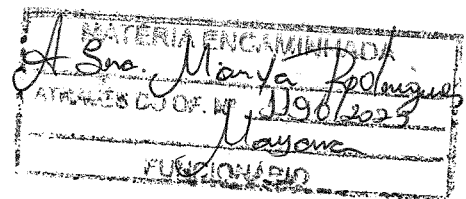 MATÉRIA ENCAMINHADA
A Sra. Marta Rodrigues
ATRAVÉS DO OF. Nº 1190/2023
Mayana
FUNCIONÁRIO